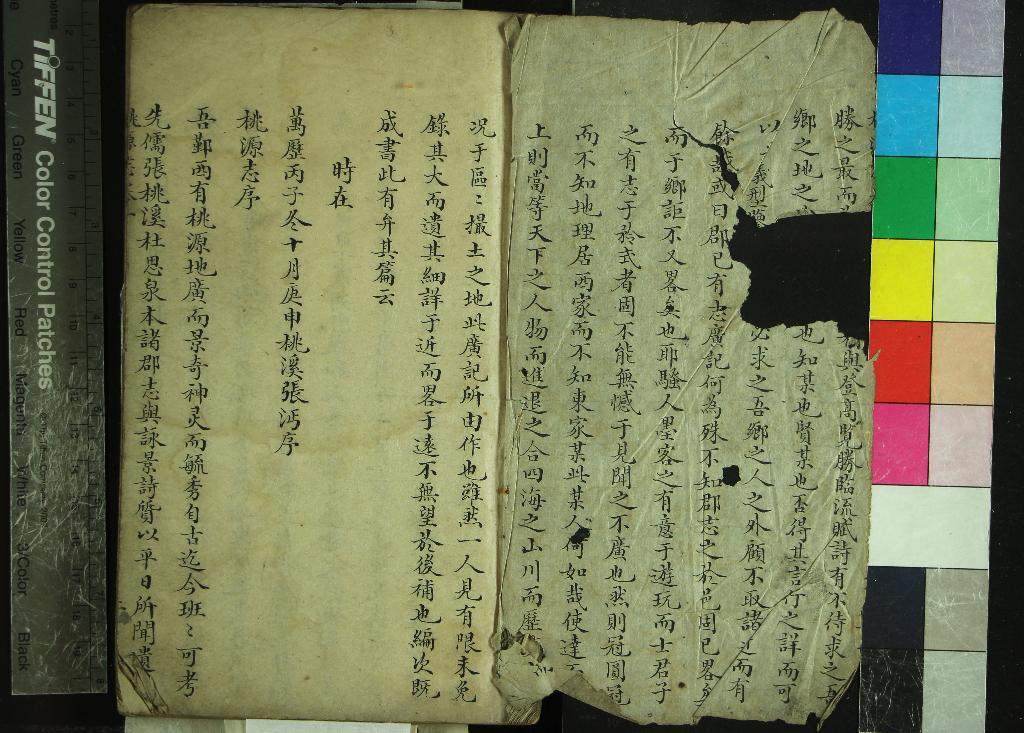 勝之最而
鄉之地之 也知某也賢某也否得其言行之詳而可
以 儀型 必求之吾鄉之人之外顧不取諸近而有
餘哉或曰郡已有志廣記何為殊不知郡志之於邑固已畧矣
而于鄉詎不又畧矣也耶騷人墨客之有意于遊玩而士君子
之有志于矜式者固不能無憾于見聞之不廣也然則冠圓冠
而不知地理居西家而不知東家某此某人何如哉使達
上則當等天下之人物而進退之合四海之山川而歷
與登高覽勝臨流賦詩有不待求之吾
况于區〻撮土之地此廣記所由作也雖然一人見有限未免
錄其大而遺其細詳于近而畧于遠不無望於後補也編次既
成書此有弁其篇云
時在
萬歷丙子冬十月庚申桃溪張沔序
桃源志序
吾鄞西有桃源地廣而景奇神灵而毓秀自古迄今班〻可考
先儒張桃溪杜思泉本諸郡志與詠景詩質以平日所聞遺
桃源志
TIFFEN Color Control Patches
Cyan Green Yellow Red Magenta White 3/Color Black